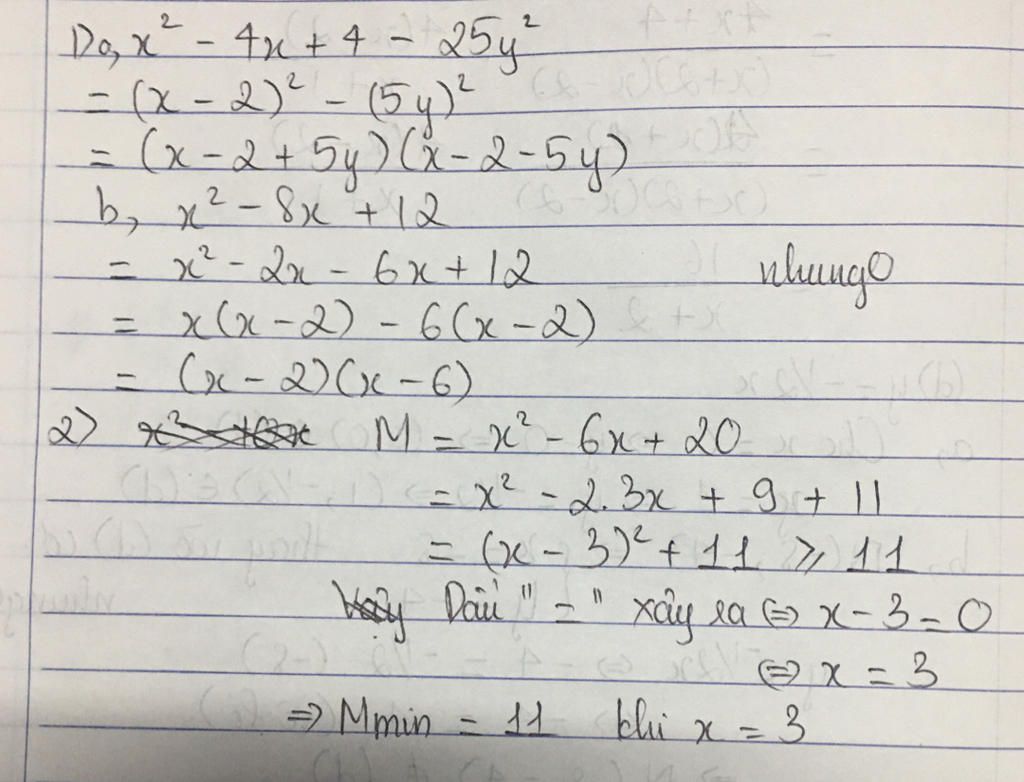 1) a, x² - 4x + 4 - 25y²
= (x - 2)² - (5y)²
= (x - 2 + 5y)(x - 2 - 5y)
b, x² - 8x + 12
= x² - 2x - 6x + 12 nhung0
= x(x - 2) - 6(x - 2)
= (x - 2)(x - 6)
2) M = x² - 6x + 20
= x² - 2.3x + 9 + 11
= (x - 3)² + 11 ⩾ 11
Dấu "=" xảy ra ⇔ x - 3 = 0
⇔ x = 3
⇒ Mmin = 11 khi x = 3